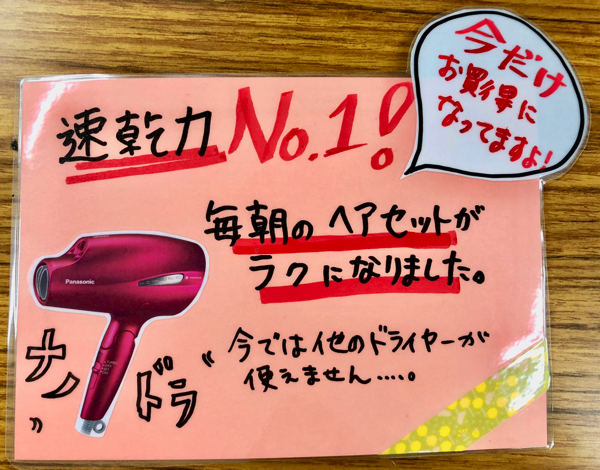 今だけ
お買得に
なってますよ!
速乾力 No.1!
毎朝の ヘアセットが
ラクになりました。
Panasonic
"ナノ
ドラ"
今では他のドライヤーが
使えません.....。